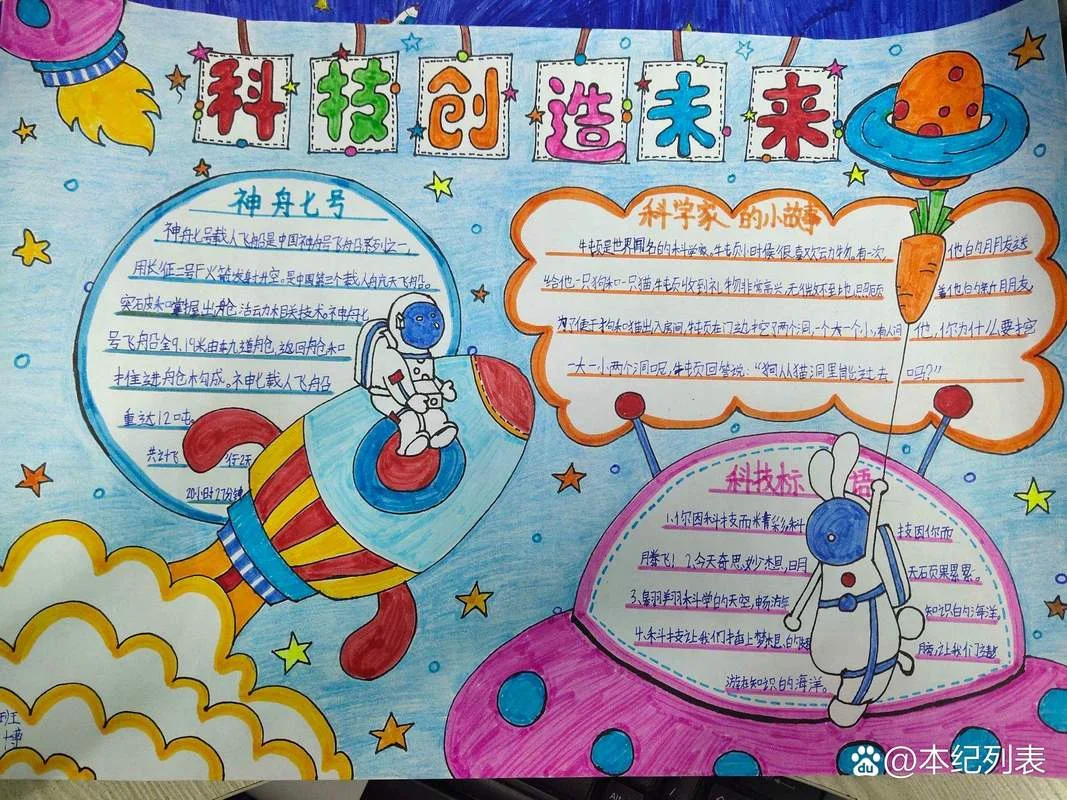 科技创造未来
神舟七号
神舟七号载人飞船是中国神舟号飞船系列之一,
用长征二号F火箭发射升空。是中国第三个载人航天飞船。
突破和掌握出舱活动相关技术。神舟七
号飞船全9.19米由轨道舱,返回舱和
推进舱构成。神七载人飞船
重达12吨
共计飞行2天
20小时27分钟
科学家的小故事
牛顿是世界闻名的科学家。牛顿小时候很喜欢动物。有一次他的朋友送
给他一只狗和一只猫,牛顿收到礼物非常高兴,无微不至地照顾着他的新朋友。
为了便于狗和猫出入房间,牛顿在门边挖了两个洞,一个大一个小,有人问他,你为什么要挖
一大一小两个洞呢,牛顿回答说:“狗从猫洞里能过去吗?”
科技标语
1.你因科技而精彩,科技因你而
腾飞! 2.今天奇思妙想,明天硕果累累。
3.展翅科学的天空,畅游知识的海洋
4.科技让我们插上梦想的翅膀,让我们遨
游在知识的海洋。
班
博
@本纪列表